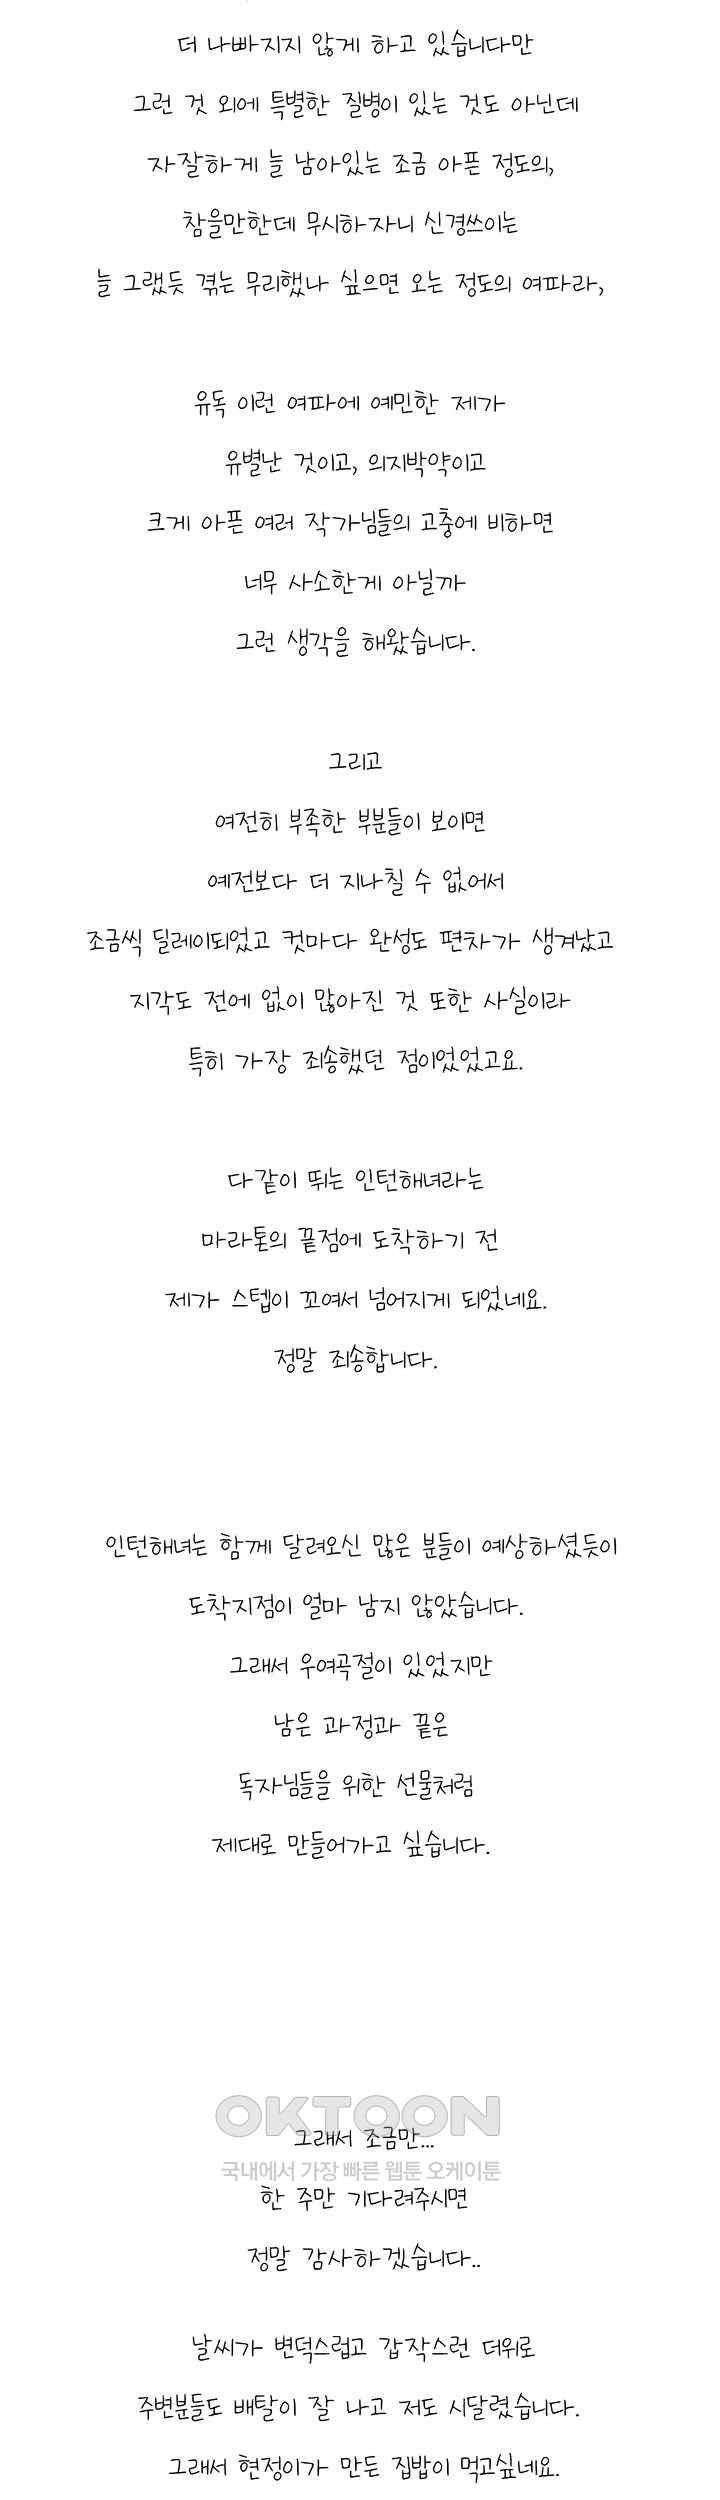 더 나빠지지 않게 하고 있습니다만
그런 것 외에 특별한 질병이 있는 것도 아닌데
자잘하게 늘 남아있는 조금 아픈 정도의,
참을만한데 무시하자니 신경쓰이는
늘 그랬듯 겪는 무리했나 싶으면 오는 정도의 여파라,
유독 이런 여파에 예민한 제가
유별난 것이고, 의지박약이고
크게 아픈 여러 작가님들의 고충에 비하면
너무 사소한게 아닐까
그런 생각을 해왔습니다.
그리고
여전히 부족한 부분들이 보이면
예전보다 더 지나칠 수 없어서
조금씩 딜레이되었고 컷마다 완성도 편차가 생겨났고
지각도 전에 없이 많아진 것 또한 사실이라
특히 가장 죄송했던 점이었었고요.
다같이 뛰는 인턴해녀라는
마라톤의 끝점에 도착하기 전
제가 스텝이 꼬여서 넘어지게 되었네요.
정말 죄송합니다.
인턴해녀는 함께 달려오신 많은 분들이 예상하셨듯이
도착지점이 얼마 남지 않았습니다.
그래서 우여곡절이 있었지만
남은 과정과 끝은
독자님들을 위한 선물처럼
제대로 만들어가고 싶습니다.
OKTOON
그래서 조금만...
국내에서 가장 빠른 웹툰 오케이툰
한 주만 기다려주시면
정말 감사하겠습니다..
날씨가 변덕스럽고 갑작스런 더위로
주변분들도 배탈이 잘 나고 저도 시달렸습니다.
그래서 현정이가 만든 집밥이 먹고싶네요.